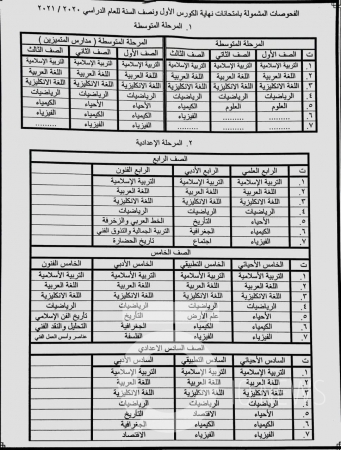 الفحوصات المشمولة بامتحانات نهاية الكورس الأول ونصف السنة للعام الدراسي ٢٠٢٠ / ٢٠٢١
١. المرحلة المتوسطة
المرحلة المتوسطة المرحلة المتوسطة ( مدارس المتميزين )
ت الصف الأول الصف الثاني الصف الثالث الصف الأول الصف الثاني الصف الثالث
١. التربية الإسلامية التربية الإسلامية التربية الإسلامية التربية الإسلامية التربية الإسلامية التربية الإسلامية
٢. اللغة العربية اللغة العربية اللغة العربية اللغة العربية اللغة العربية اللغة العربية
٣. اللغة الانكليزية اللغة الانكليزية اللغة الانكليزية اللغة الانكليزية اللغة الانكليزية اللغة الانكليزية
٤. الرياضيات الرياضيات الرياضيات الرياضيات الرياضيات الرياضيات
٥. العلوم العلوم الكيمياء الأحياء الأحياء الأحياء
٦. ......... ......... الفيزياء الكيمياء الكيمياء الكيمياء
٧. ......... ......... ......... الفيزياء الفيزياء الفيزياء
٢. المرحلة الإعدادية
الصف الرابع
ت الرابع العلمي الرابع الأدبي الرابع الفنون
١. التربية الإسلامية التربية الإسلامية التربية الإسلامية
٢. اللغة العربية اللغة العربية اللغة العربية
٣. اللغة الانكليزية اللغة الانكليزية اللغة الانكليزية
٤. الرياضيات الرياضيات الرياضيات
٥. الأحياء التأريخ الخط العربي والزخرفة
٦. الكيمياء الجغرافية التربية الجمالية والتذوق الفني
٧. الفيزياء اجتماع تأريخ الحضارة
الصف الخامس
ت الخامس الأحيائي الخامس التطبيقي الخامس الأدبي الخامس الفنون
١. التربية الأسلامية التربية الأسلامية التربية الأسلامية التربية الأسلامية
٢. اللغة العربية اللغة العربية اللغة العربية اللغة العربية
٣. اللغة الانكليزية اللغة الانكليزية اللغة الانكليزية اللغة الانكليزية
٤. الرياضيات الرياضيات الرياضيات الرياضيات
٥. الأحياء علم الأرض التأريخ تأريخ الفن الإسلامي
٦. الكيمياء الكيمياء الجغرافية التحليل والنقد الفني
٧. الفيزياء الفيزياء الفلسفة عناصر وأسس العمل الفني
الصف السادس الاعدادي
ت السادس الأحيائي السادس التطبيقي السادس الأدبي
١. التربية الإسلامية التربية الإسلامية التربية الإسلامية
٢. اللغة العربية اللغة العربية اللغة العربية
٣. اللغة الانكليزية اللغة الانكليزية اللغة الانكليزية
٤. الرياضيات الرياضيات الرياضيات
٥. الأحياء الاقتصاد التأريخ
٦. الكيمياء الكيمياء الجغرافية
٧. الفيزياء الفيزياء الاقتصاد